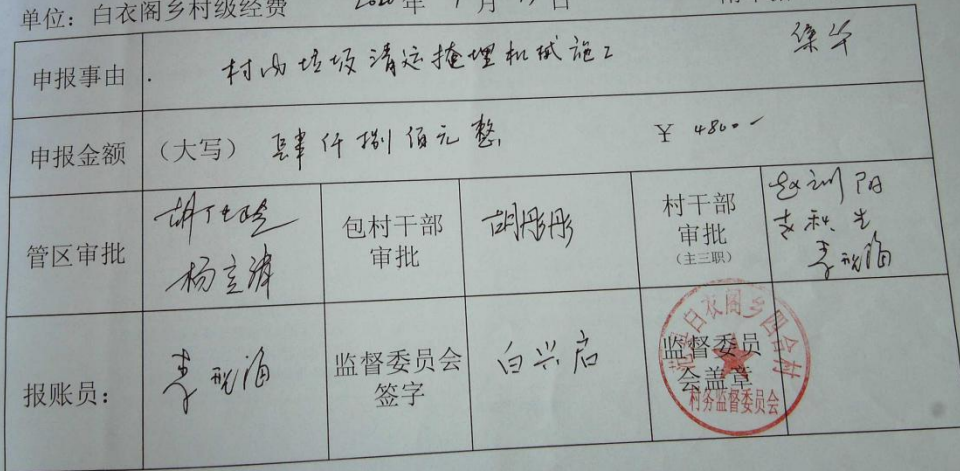 单位：白衣阁乡村级经费 2020年 月 日
申报事由 村内垃圾清运掩埋机械施工
申报金额 （大写） 肆仟捌佰元整 ¥ 4800-
管区审批 胡 杨立 包村干部审批 胡彤彤 村干部审批（主三职） 赵训阳 李 海
报账员： 李 海 监督委员会签字 白兴启 监督委员会盖章
白衣阁乡四合村
村务监督委员会